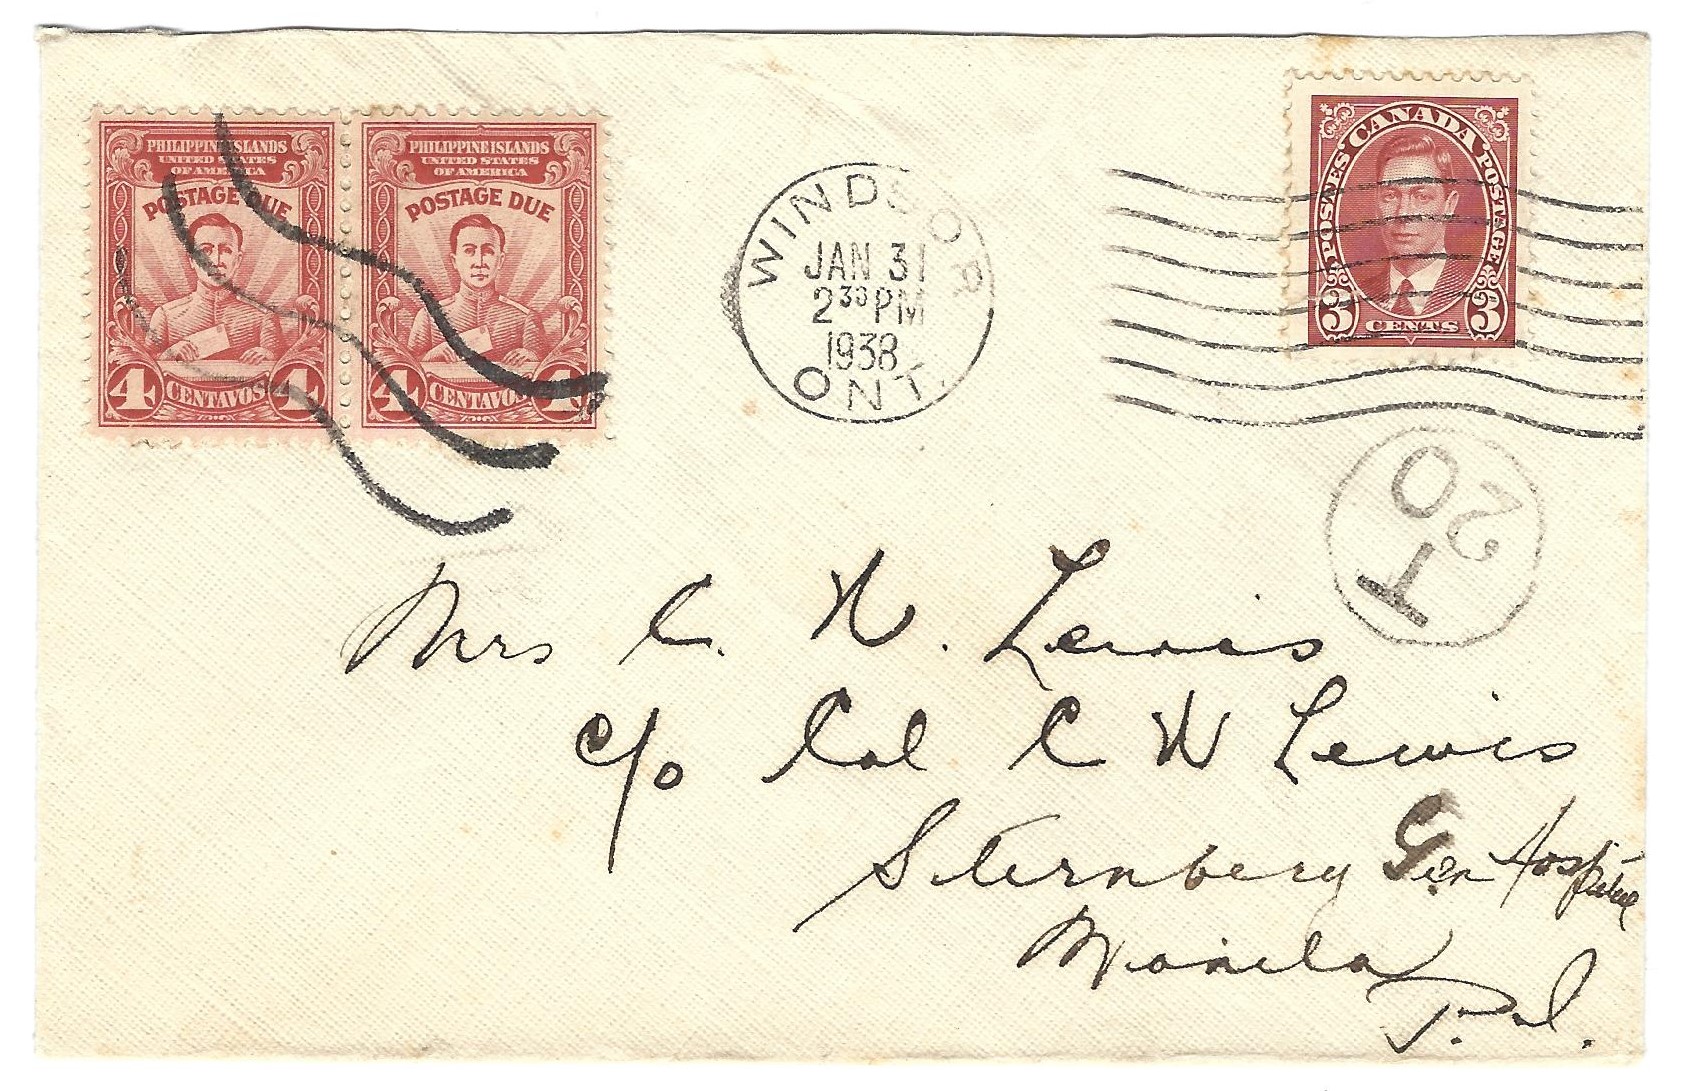 PHILIPPINE ISLANDS
UNITED STATES
OF AMERICA
POSTAGE DUE
4 CENTAVOS 4
PHILIPPINE ISLANDS
UNITED STATES
OF AMERICA
POSTAGE DUE
4 CENTAVOS 4
WINDSOR
JAN 31
2 30 PM
1938
ONT.
POSTES CANADA POSTAGE
3 CENTS 3
T
20
Mrs C. W. Lewis
c/o Col C W Lewis
Sternberg Gen Hospital
Manila
P. I.